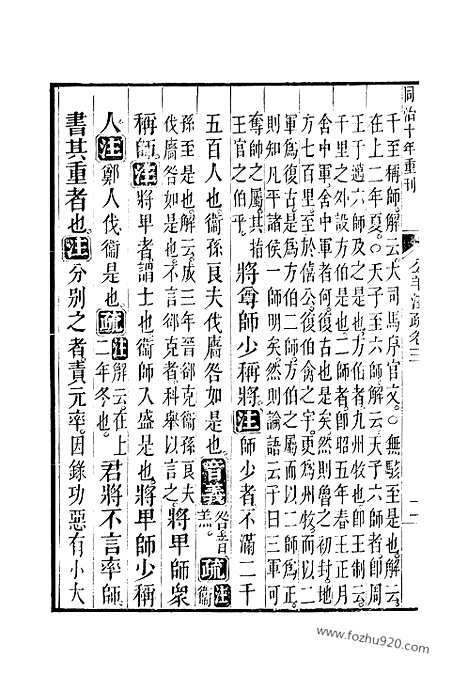 同治十年重刊
公羊注疏卷三
千至稱師。解云大司馬序官文。○無駭至是也。解云
在上二年夏。○天子至六師解云天子六師者即周
王于邁六師及之是也方伯者九州牧也即王制云
千里之外設方伯是也二師者即昭五年春王正月
舍中軍舍中軍者何復古也是矣然則魯之初封地
方七百里至於僖公復伯禽之宇更爲州牧而以二
軍爲復古是爲方伯二師方伯之屬而以二師爲正
則知凡平諸侯一師明矣然則論語云于曰三軍可
奪帥之屬其指
王官之伯乎。
將尊師少稱將。注師少者不滿二千
五百人也衞孫良夫伐廧咎如是也。音義咎音羔。疏注衞
孫至是也。解云成三年晉郤克衞孫良夫
伐廧咎如是也然不言郤克者科舉以言之。
將卑師衆
稱師。注將卑者謂士也衞師入盛是也。將卑師少稱
人。注鄭人伐衞是也。疏注解云在上二年冬也。君將不言率師
書其重者也。注分別之者責元率因錄功惡有小大
www.fozhu920.com